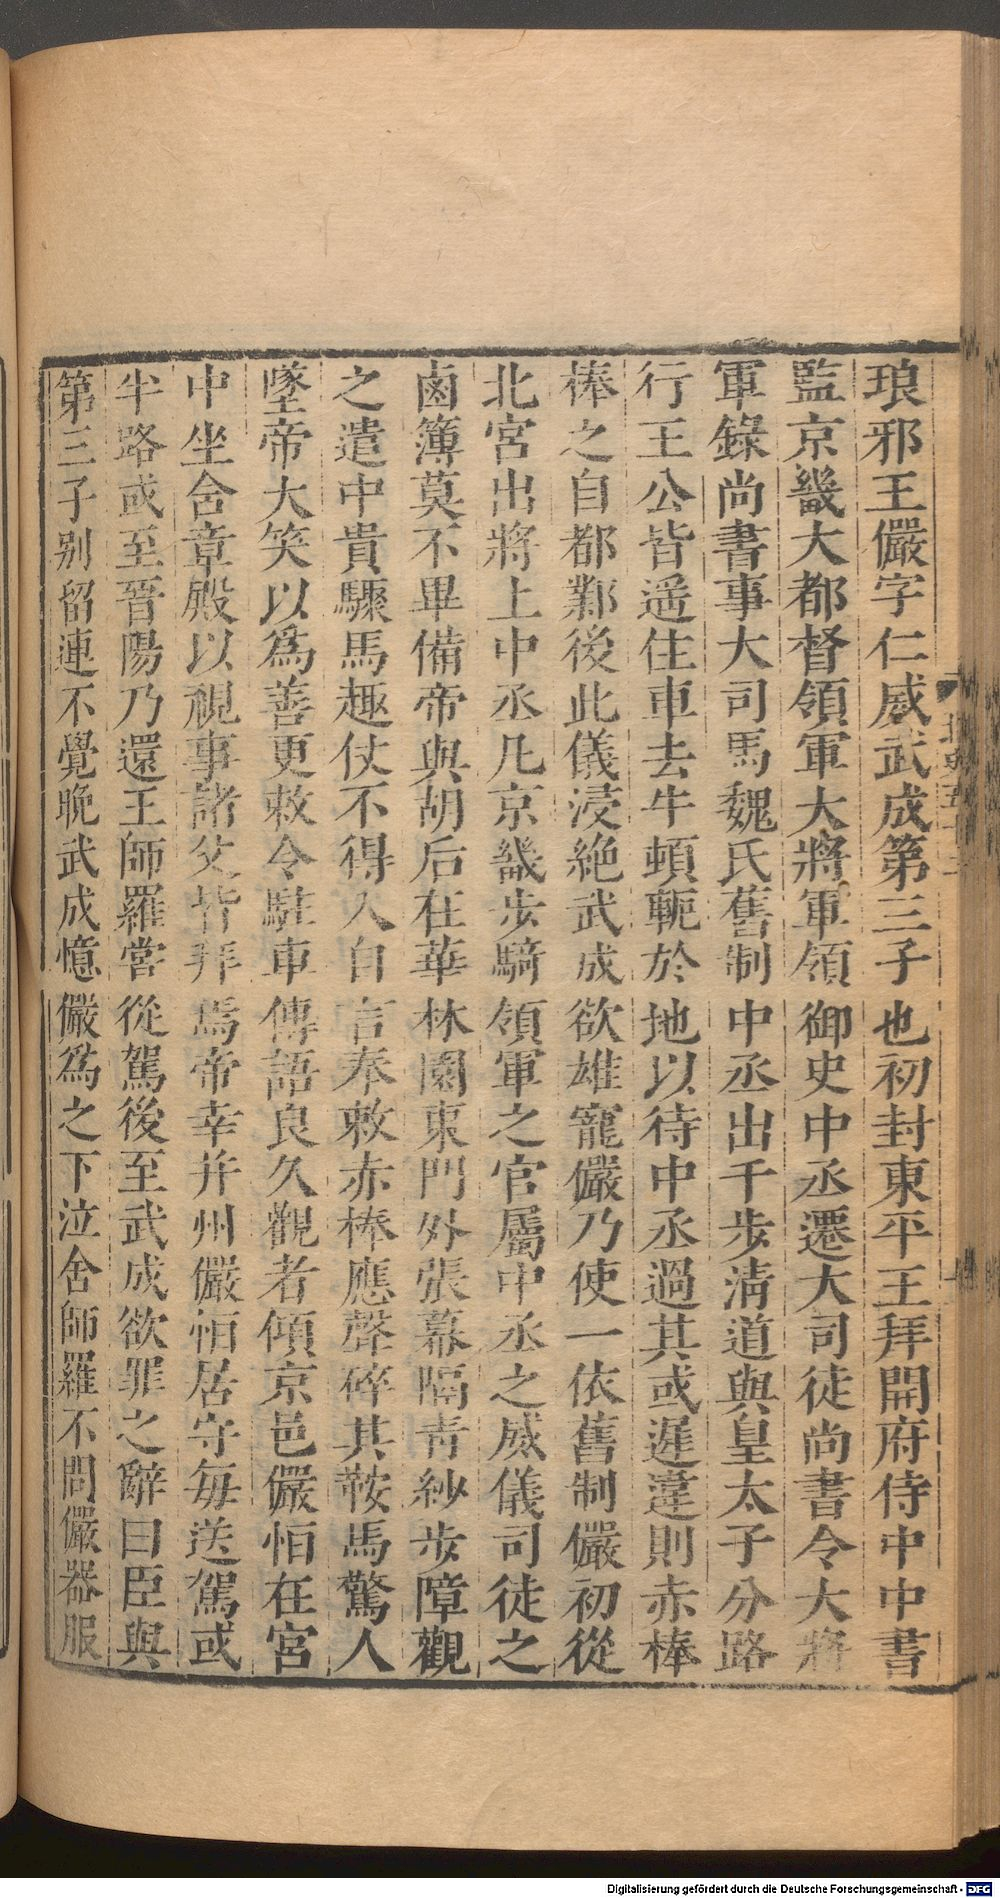 琅邪王儼字仁威武成第三子也初封東平王拜開府侍中中書
監京畿大都督領軍大將軍領御史中丞遷大司徒尚書令大將
軍錄尚書事大司馬魏氏舊制中丞出千步清道與皇太子分路
行王公皆遥住車去牛頓軛於地以待中丞過其或遲違則赤棒
棒之自都鄴後此儀浸絶武成欲雄寵儼乃使一依舊制儼初從
北宮出將上中丞凡京畿步騎領軍之官屬中丞之威儀司徒之
鹵簿莫不畢備帝與胡后在華林園東門外張幕隔青紗步障觀
之遣中貴驟馬趣仗不得入自言奉敕赤棒應聲碎其鞍馬驚人
墜帝大笑以爲善更敕令駐車傳語良久觀者傾京邑儼恒在宮
中坐含章殿以視事諸父皆拜焉帝幸并州儼恒居守每送駕或
半路或至晉陽乃還王師羅嘗從駕後至武成欲罪之辭曰臣與
第三子别留連不覺晚武成憶儼爲之下泣舍師羅不問儼器服
北史五十二
Digitalisierung gefördert durch die Deutsche Forschungsgemeinschaft - DFG